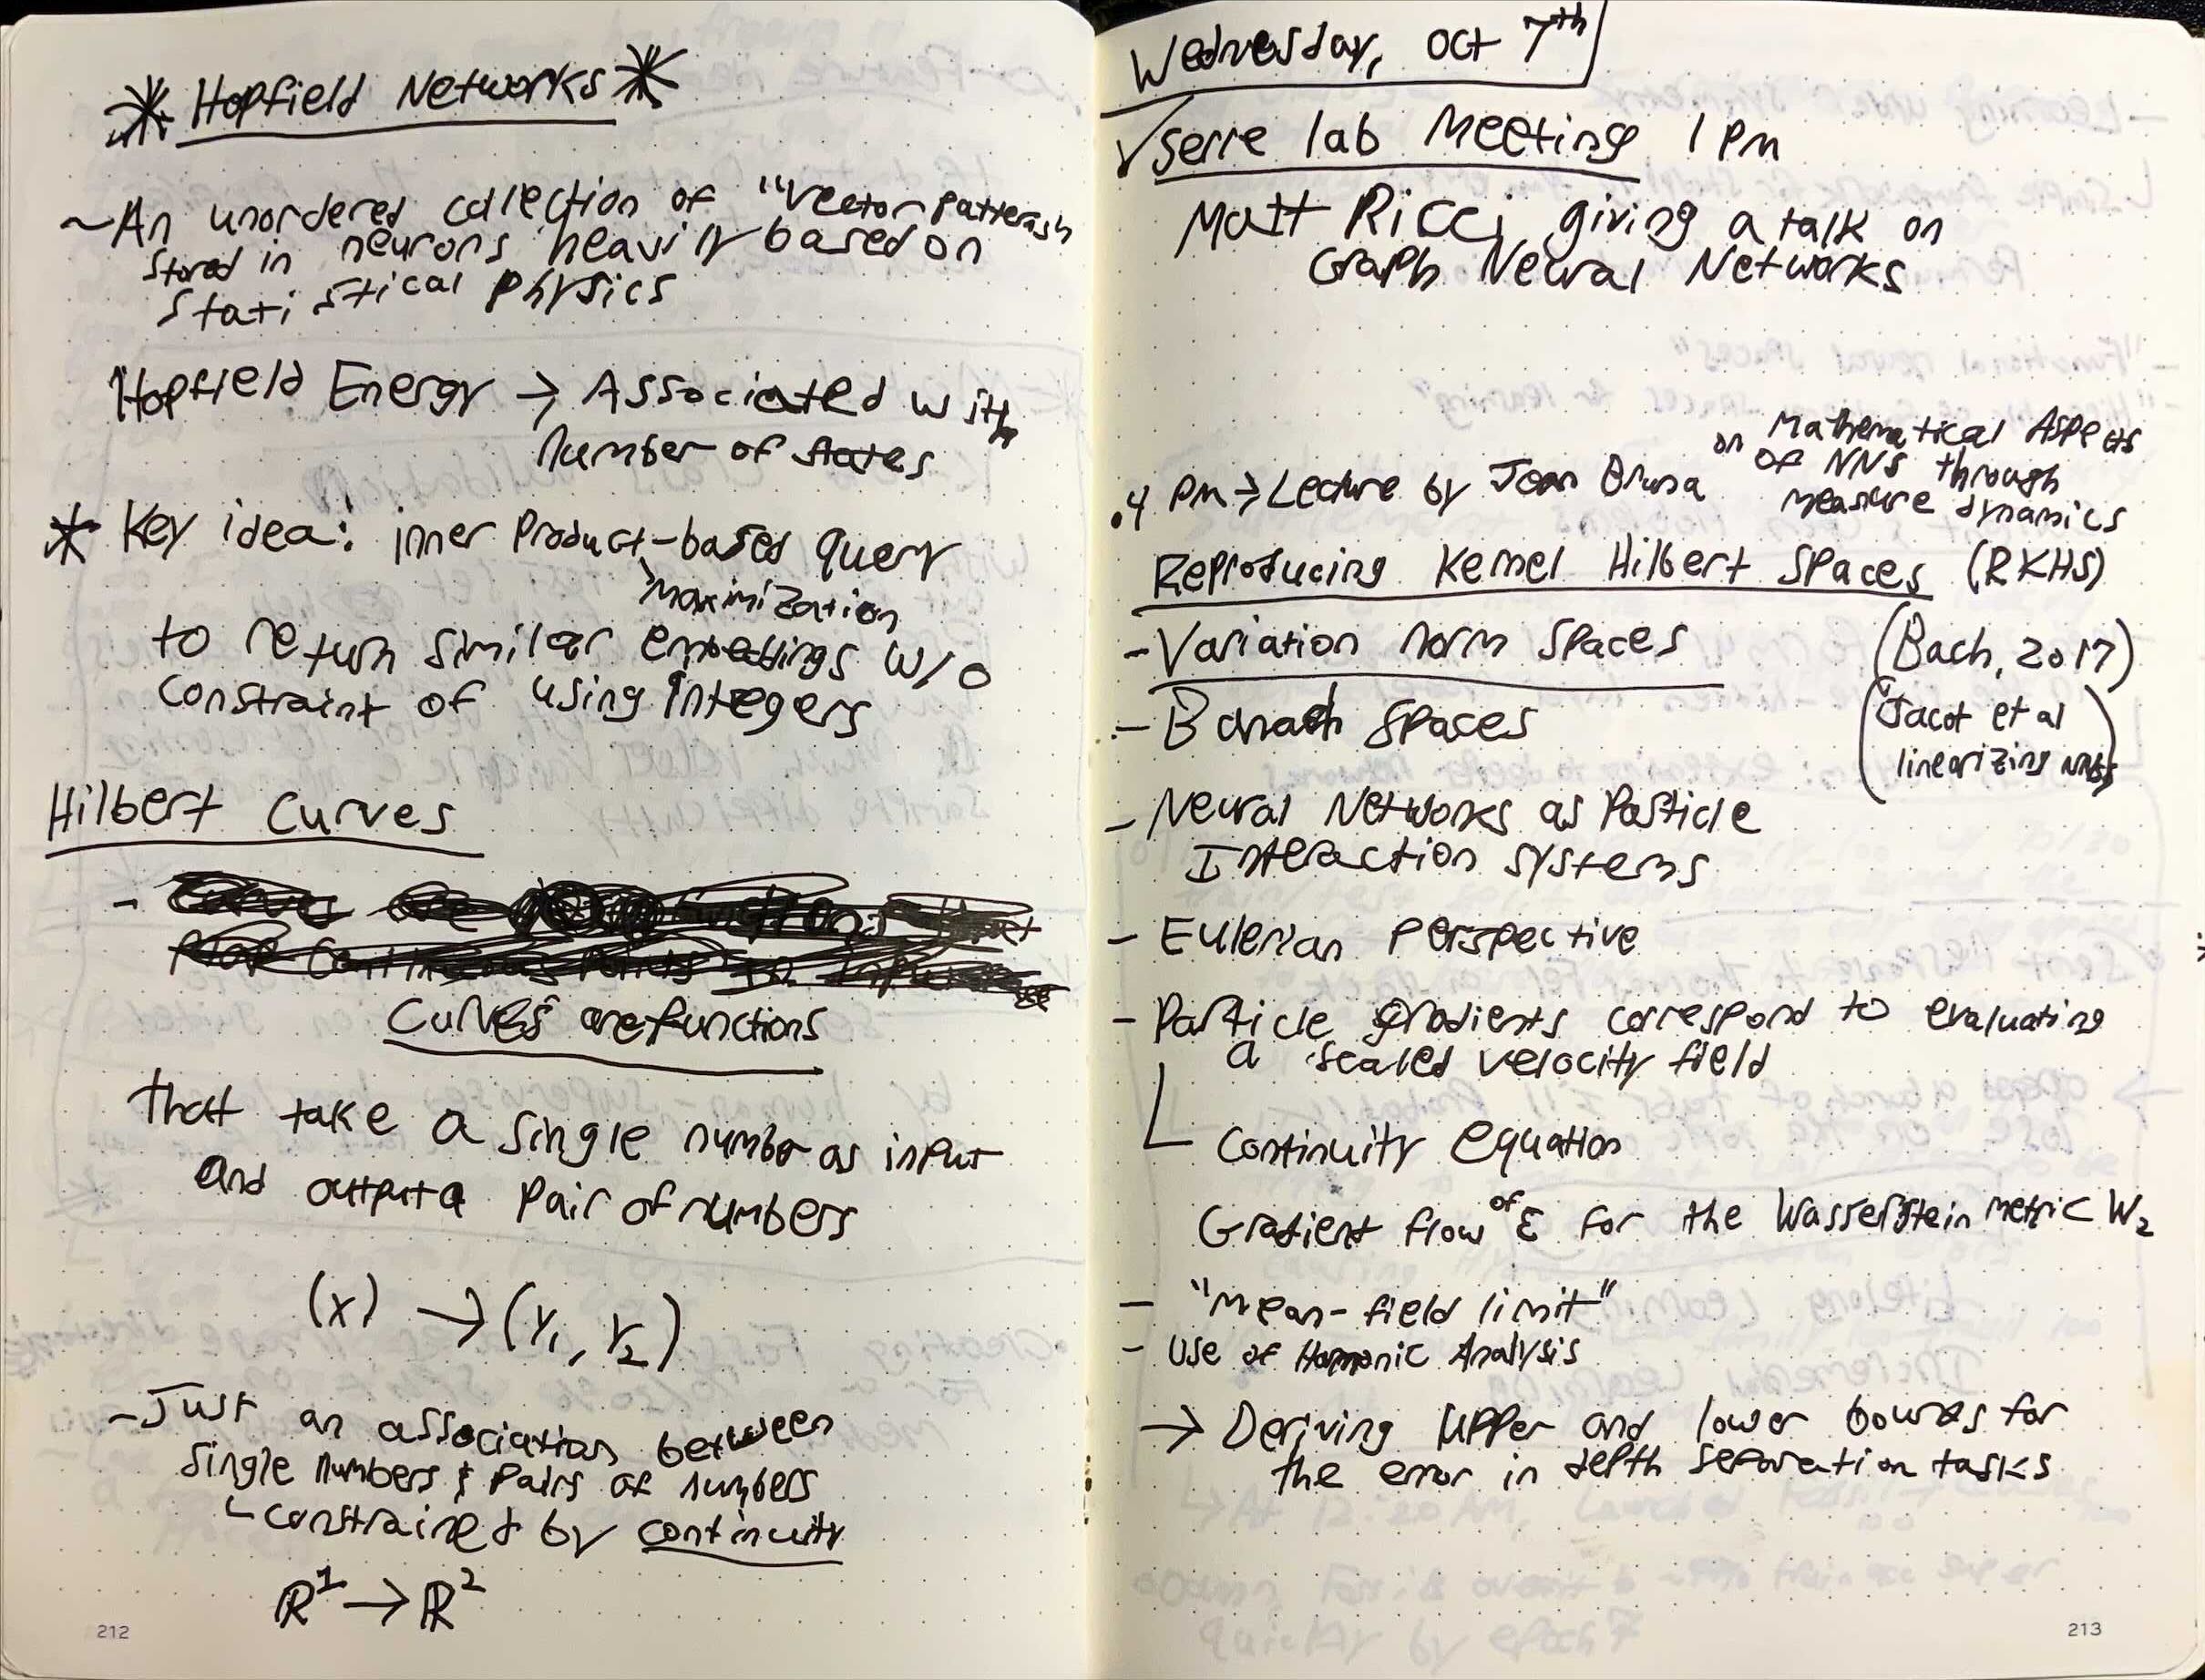 Hopfield Networks
~An unordered collection of "vector patterns"
stored in neurons heavily based on
statistical physics
Hopfield Energy → Associated with
number of states
* Key idea: inner product-based query
maximization
to return similar embeddings w/o
constraint of using integers
Hilbert Curves
-
Curves are functions
that take a single number as input
and output a pair of numbers
(x) → (y₁, y₂)
-Just an association between
single numbers & pairs of numbers
constrained by continuity
ℝ¹ → ℝ²
212
Wednesday, Oct 7th
✓ Serre lab Meeting 1 pm
Matt Ricci giving a talk on
Graph Neural Networks
on Mathematical Aspects
of NNs through
measure dynamics
.4 pm → Lecture by Joan Bruna
Reproducing Kernel Hilbert Spaces (RKHS)
- Variation norm spaces (Bach, 2017)
- Banach spaces (Jacot et al
linearizing NNs)
- Neural Networks as Particle
Interaction systems
- Eulerian Perspective
- Particle gradients correspond to evaluating
a scaled velocity field
Continuity equation
Gradient flow of ε for the Wasserstein metric W₂
- "Mean-field limit"
- Use of Harmonic Analysis
→ Deriving upper and lower bounds for
the error in depth separation tasks
213